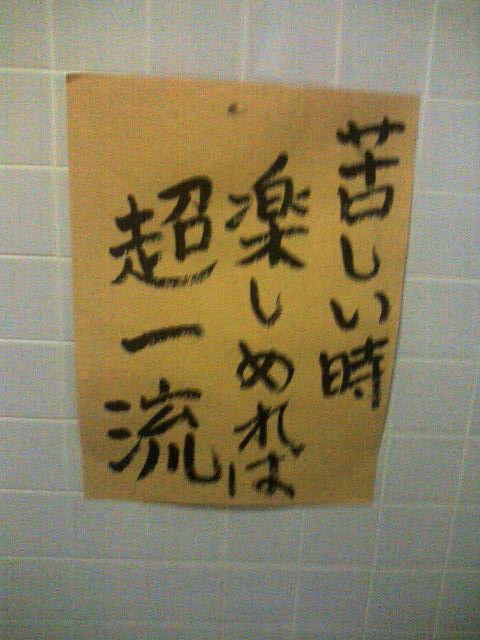 苦しい時
楽しめれば
超一流